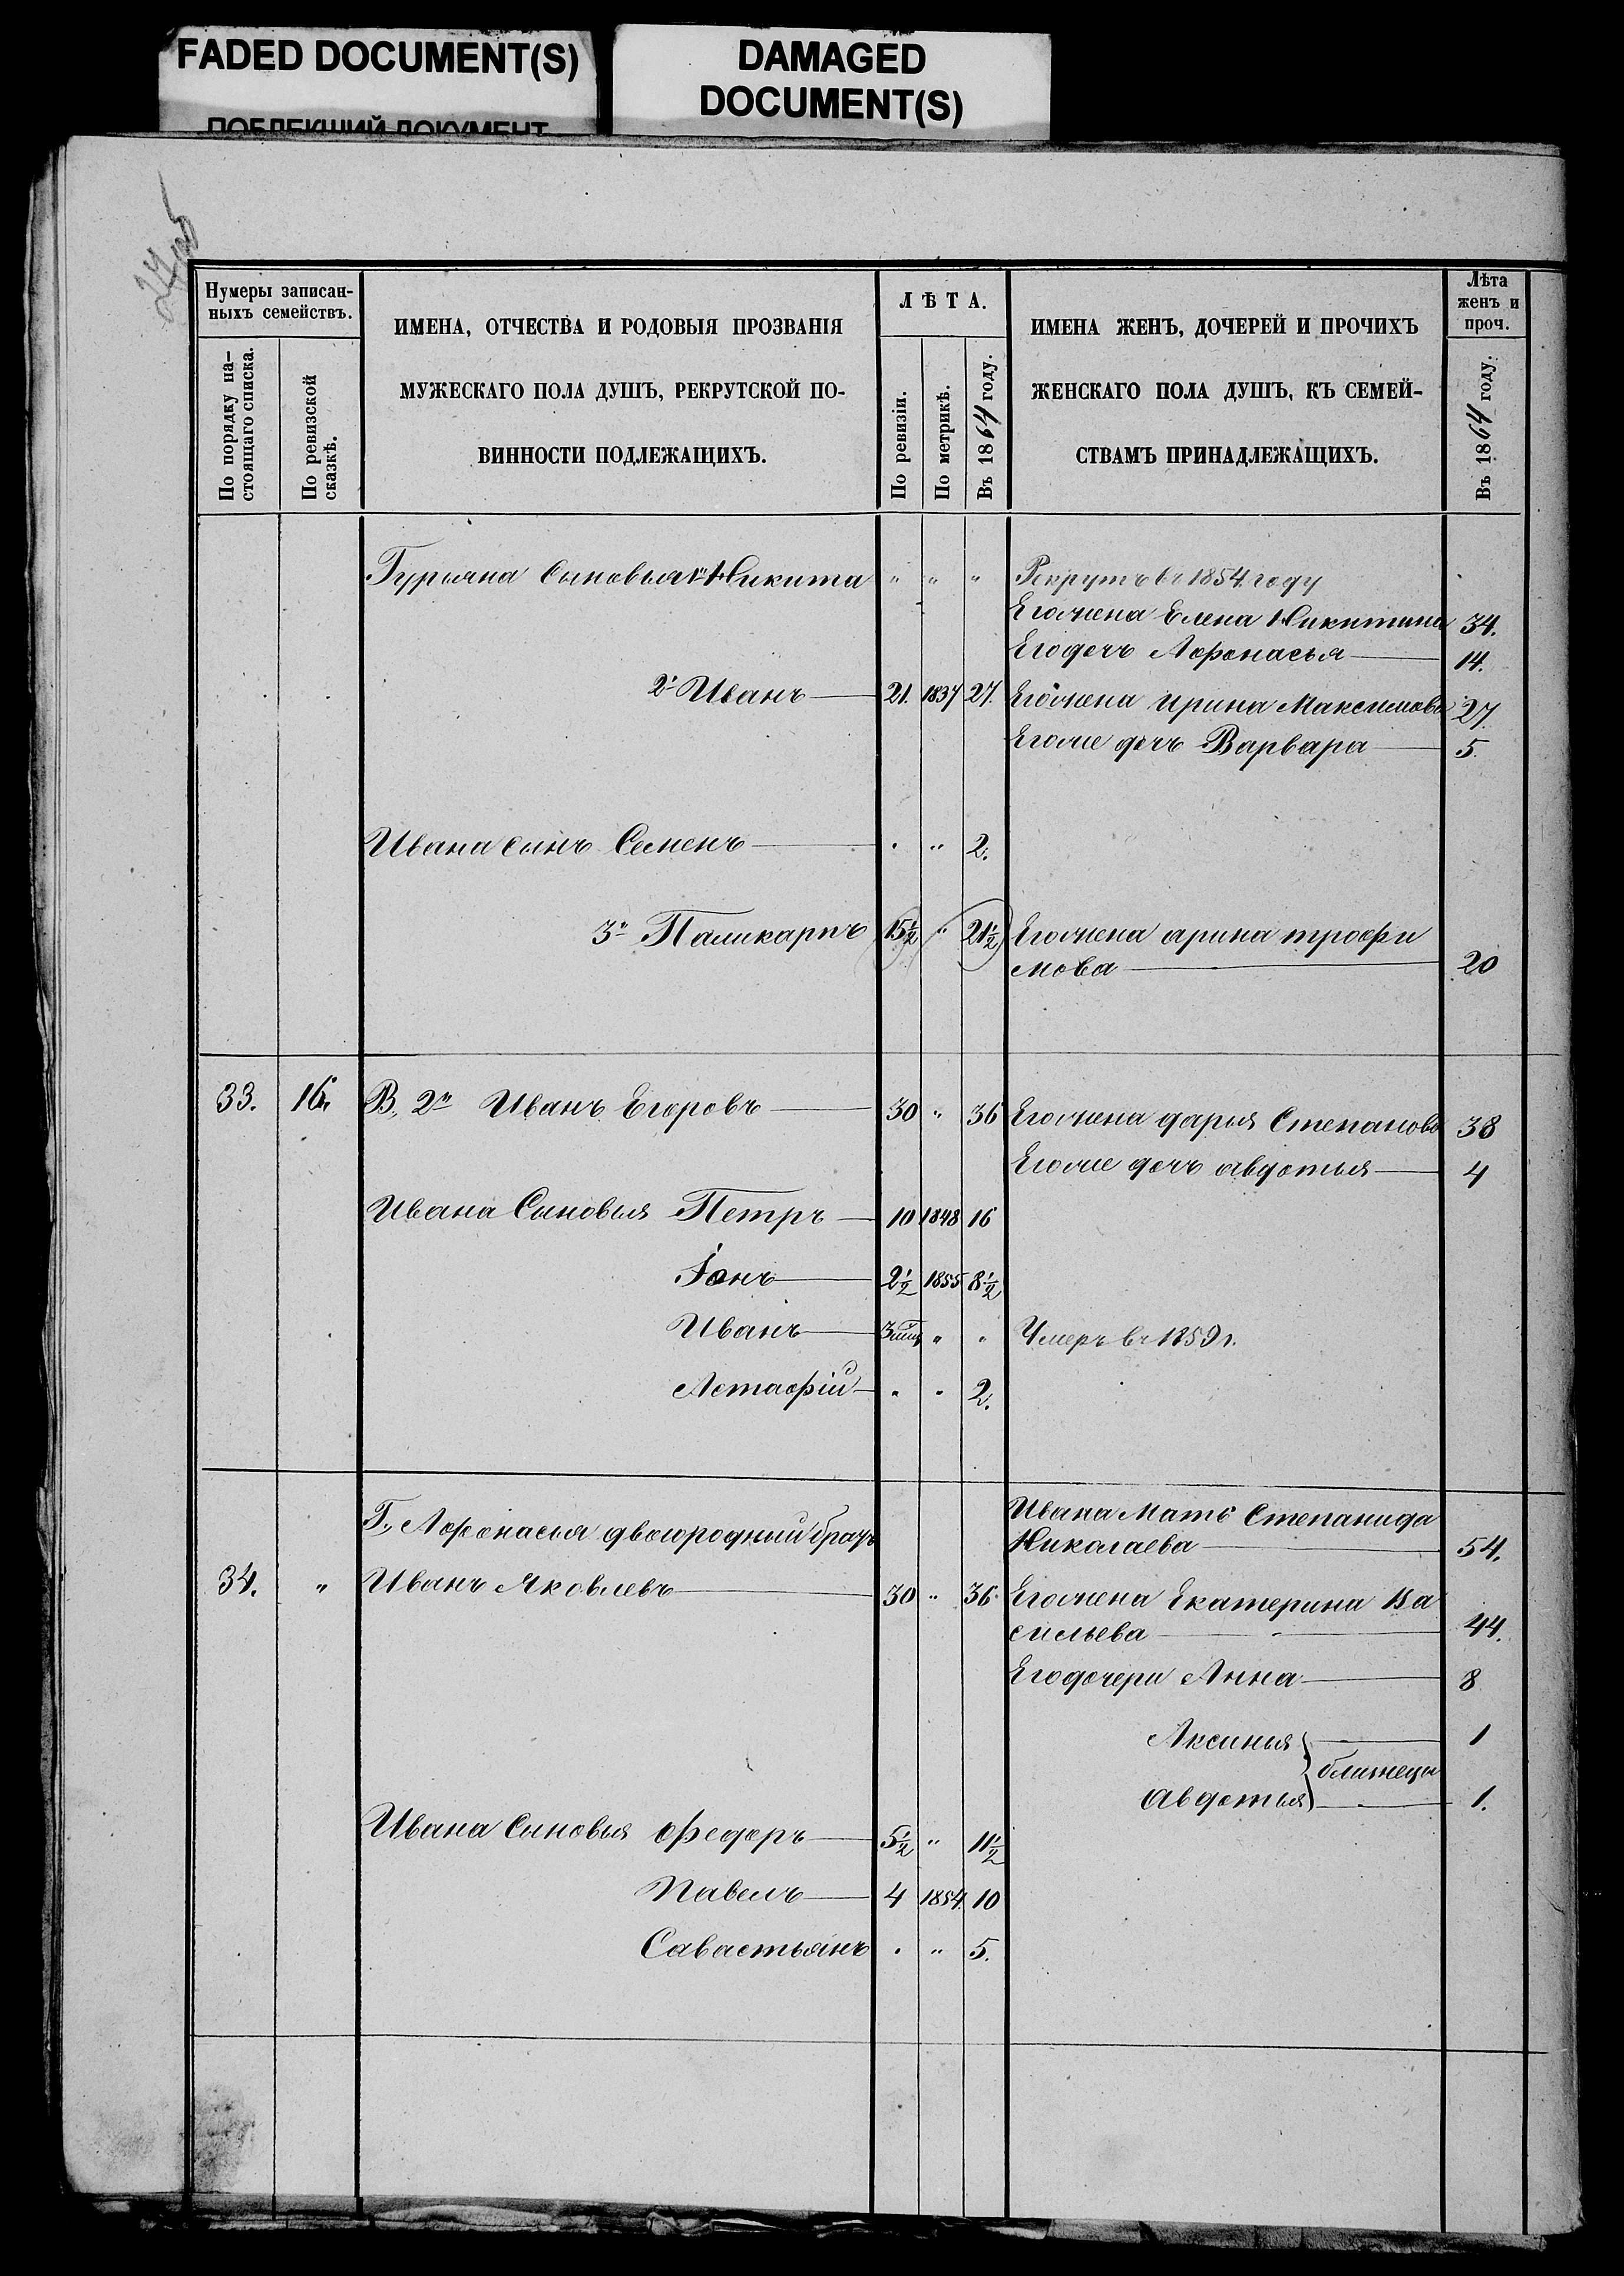 FADED DOCUMENT(S)
DAMAGED
DOCUMENT(S)
ПОБЛЕКШИЙ ДОКУМЕНТ
Нумеры записан-
ныхъ семействъ.
По порядку на-
стоящаго списка.
По ревизской
сказкѣ.
ИМЕНА, ОТЧЕСТВА И РОДОВЫЯ ПРОЗВАНІЯ
МУЖЕСКАГО ПОЛА ДУШЪ, РЕКРУТСКОЙ ПО-
ВИННОСТИ ПОДЛЕЖАЩИХЪ.
ЛѢТА.
По ревизіи.
По метрикѣ.
Въ 1864 году.
ИМЕНА ЖЕНЪ, ДОЧЕРЕЙ И ПРОЧИХЪ
ЖЕНСКАГО ПОЛА ДУШЪ, КЪ СЕМЕЙ-
СТВАМЪ ПРИНАДЛЕЖАЩИХЪ.
Лѣта
женъ и
проч.
Въ 1864 году.
Гурьяна Сыновья 1й Никита " " " Рекрутъ въ 1854 году
Его жена Елена Никитина 34.
Его дочь Афонасья 14.
2й Иванъ 21. 1837 27. Его жена Ирина Максимова 27.
Его же дочь Варвара 5.
Ивана сынъ Семенъ " " 2.
3й Паликарпъ 15½ " 21½ Его жена арина трофи
мова 20
33. 16. В., 2й Иванъ Егоровъ 30 " 36 Его жена дарья Степанова 38
Его же дочь авдотья 4
Ивана Сыновья Петръ 10 1848 16
Іонъ 2½ 1855 8½
Иванъ " " Умеръ въ 1859 г.
Астафій " " 2.
Г., Афонасья двоюродный братъ
Ивана Мать Степанида
Николаева 54.
34. " Иванъ Яковлевъ 30 " 36 Его жена Екатерина Ва
сильева 44.
Его дочери Анна 8
Аксинья 1
близнецы
Авдотья 1.
Ивана Сыновья Федоръ 5½ " 11½
Павелъ 4 1854 10
Савастьянъ " " 5.